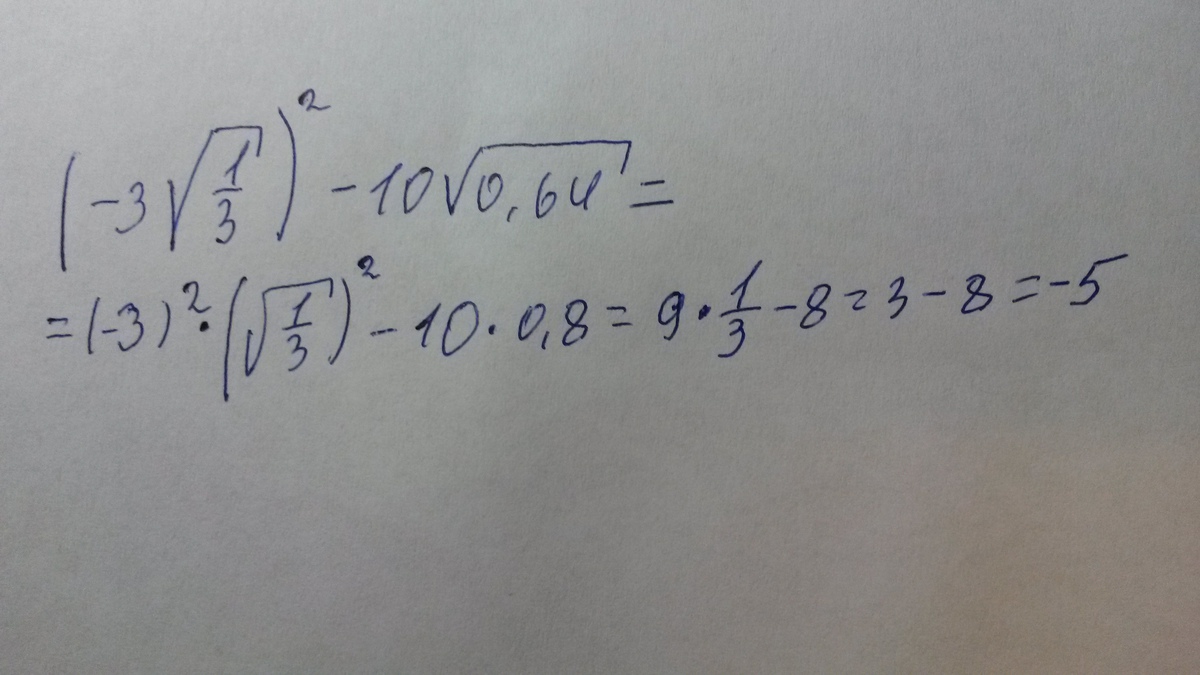 (-3√(1/3))² - 10√0,64 =
= (-3)² · (√(1/3))² - 10 · 0,8 = 9 · 1/3 - 8 = 3 - 8 = -5